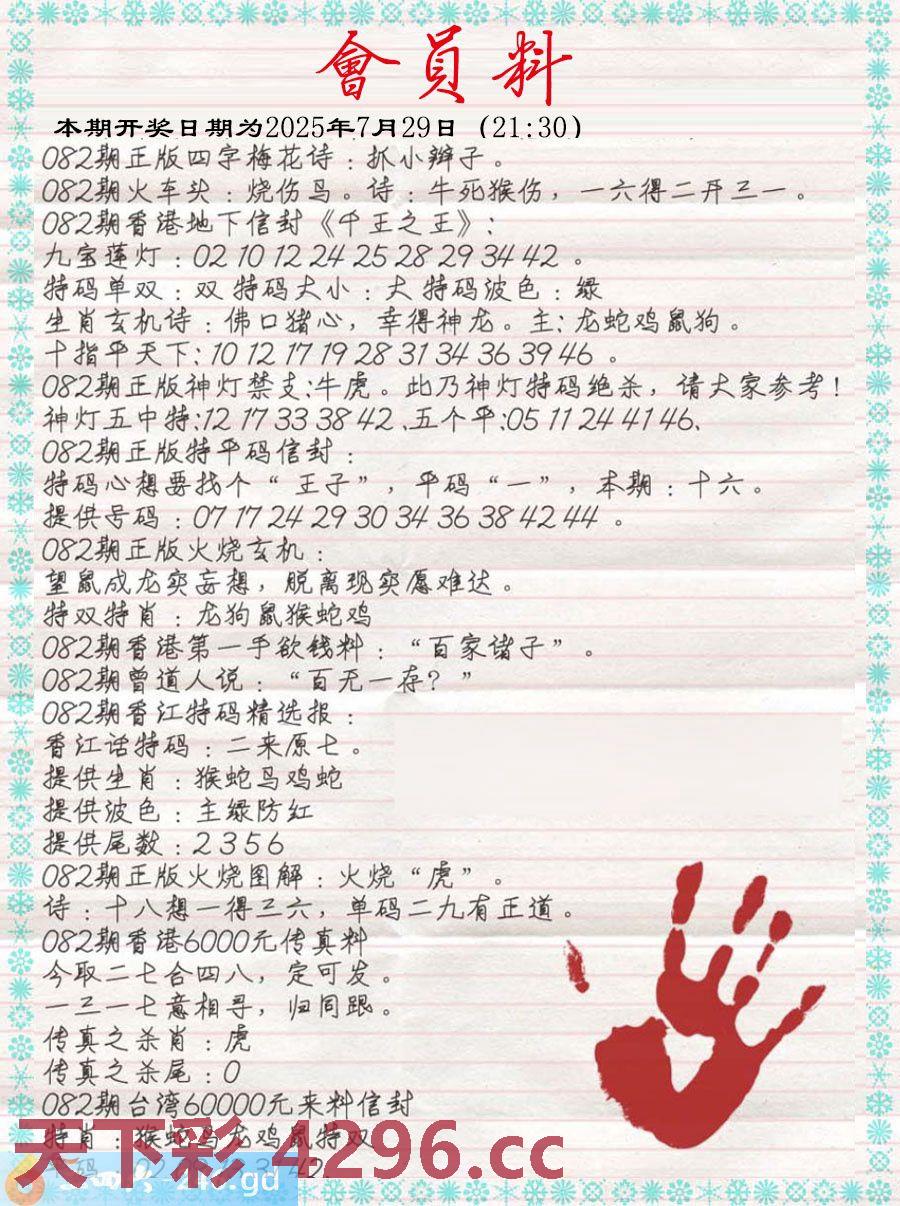 會員料
本期开奖日期为2025年7月29日（21:30）
082期正版四字梅花诗：抓小辫子。
082期火车头：烧伤鸟。诗：牛死猴伤，一六得二开三一。
082期香港地下信封《千王之王》：
九宝莲灯：02 10 12 24 25 28 29 34 42 。
特码单双：双 特码大小：大 特码波色：绿
生肖玄机诗：佛口猪心，幸得神龙。主：龙蛇鸡鼠狗。
十指平天下：10 12 17 19 28 31 34 36 39 46 。
082期正版神灯禁支：牛虎。此乃神灯特码绝杀，请大家参考！
神灯五中特：12 17 33 38 42 、五个平：05 11 24 41 46、
082期正版特平码信封：
特码心想要找个“ 王子”，平码“一”，本期：十六。
提供号码：07 17 24 29 30 34 36 38 42 44 。
082期正版火烧玄机：
望鼠成龙奕妄想，脱离现奕愿难达。
特双特肖：龙狗鼠猴蛇鸡
082期香港第一手欲钱料：“百家诸子”。
082期曾道人说：“百无一存？”
082期香江特码精选报：
香江话特码：二来原七。
提供生肖：猴蛇马鸡蛇
提供波色：主绿防红
提供尾数：2 3 5 6
082期正版火烧图解：火烧“虎”。
诗：十八想一得三六，单码二九有正道。
082期香港6000元传真料
今取二七合四八，定可发。
一三一七意相寻，归同跟。
传真之杀肖：虎
传真之杀尾：0
082期台湾60000元来料信封
特肖：猴蛇马龙鸡鼠特双
天下彩 4296.cc